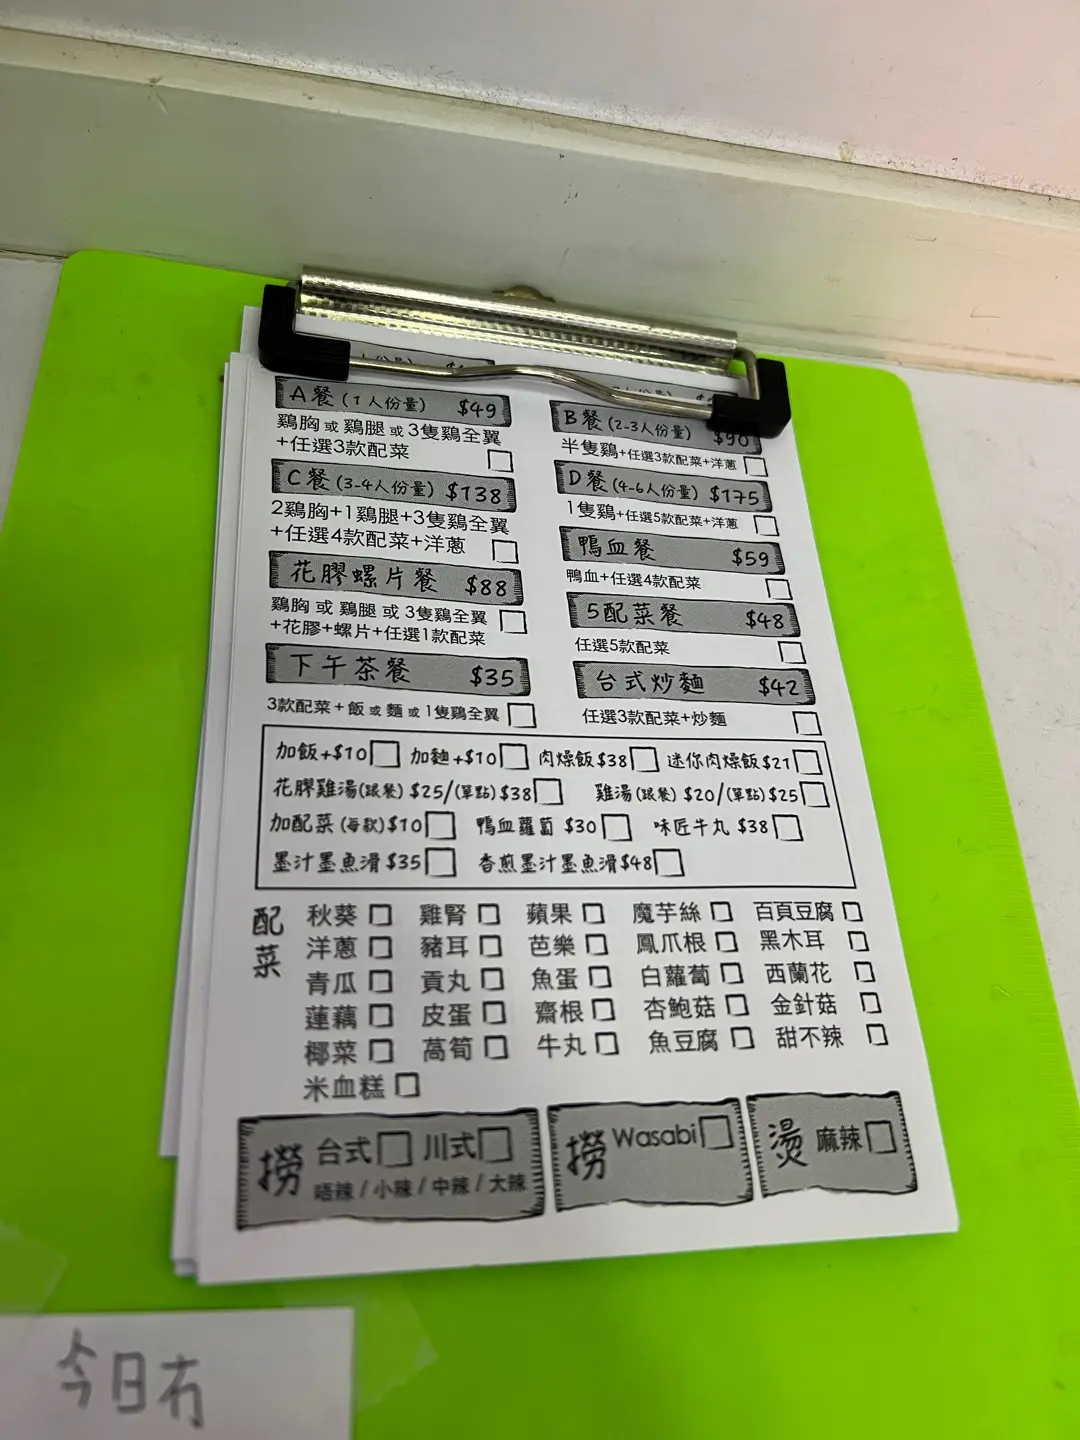 A餐 (1人份量) $49
鷄胸 或 鷄腿 或 3隻鷄全翼
+任選3款配菜
B餐 (2-3人份量) $90
半隻鷄+任選3款配菜+洋蔥
C餐 (3-4人份量) $138
2鷄胸+1鷄腿+3隻鷄全翼
+任選4款配菜+洋蔥
D餐 (4-6人份量) $175
1隻鷄+任選5款配菜+洋蔥
花膠螺片餐 $88
鷄胸 或 鷄腿 或 3隻鷄全翼
+花膠+螺片+任選1款配菜
鴨血餐 $59
鴨血+任選4款配菜
下午茶餐 $35
3款配菜+飯 或 麵 或 1隻鷄全翼
5配菜餐 $48
任選5款配菜
台式炒麵 $42
任選3款配菜+炒麵
加飯+$10 加麵+$10 肉燥飯$38 迷你肉燥飯$21
花膠雞湯(跟餐) $25/(單點)$38 雞湯(跟餐) $20/(單點)$25
加配菜(每款)$10 鴨血蘿蔔 $30 味匠牛丸 $38
墨汁墨魚滑$35 香煎墨汁墨魚滑$48
配菜
秋葵 雞腎 蘋果 魔芋絲 百頁豆腐
洋蔥 豬耳 芭樂 鳳爪根 黑木耳
青瓜 貢丸 魚蛋 白蘿蔔 西蘭花
蓮藕 皮蛋 齋根 杏鮑菇 金針菇
椰菜 萵筍 牛丸 魚豆腐 甜不辣
米血糕
撈 台式 川式
唔辣 / 小辣 / 中辣 / 大辣
撈 Wasabi
燙 麻辣
今日冇